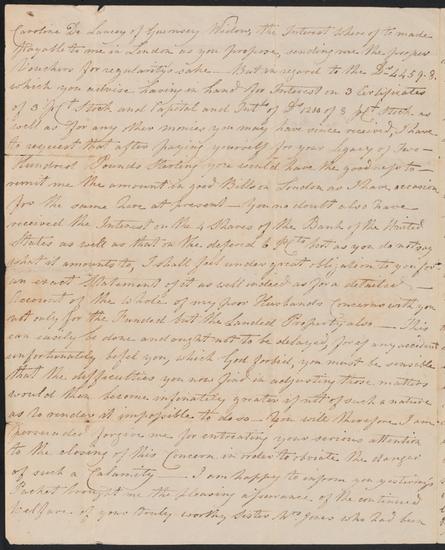 Caroline De Lancey of Guernsey Widow, the Interest where of to made
Payable to me in London as you propose, sending me the proper
Vouchers for regularity's sake — But in regard to the Ds 4459.8.
which you advise having in hand for Interest on 3 Certificates
of 3 pCt Stock and Capital and Intt of Ds 1200 of 8 pCt Stock as
well as for any other monies you may have since received, I have
to request that after paying yourself for your Legacy of Two
Hundred Pounds Sterling you would have the goodness to
remit me the amount in good Bills on London as I have occasion
for the same here at present — You no doubt also have
received the Interest on the 4 Shares of the Bank of the United
States as well as that on the defered 6 pCts but as you do not say
what it amounts to, I shall feel under great obligation to you for
an exact Statement of it as well indeed as for a detailed
Account of the whole of my poor Husbands Concerns with you
not only for the Funded but the Landed Property also — This
can easily be done and ought not to be delayed, for if any accident
unfortunately befel you, which God forbid, you must be sensible
that the deffaculties you now find in adjusting those matters
would then become infinately greater if not of such a nature
as to render it impossible to do so. You will therefore I am
persuaded forgive me for entreating your serious attention
to the closing of this Concern in order to obviate the danger
of such a Calamity — I am happy to inform you yesterdays
Packet brought me the pleasing assurance of the continued
Welfare of your truly worthy Sister Mrs Jones who had been